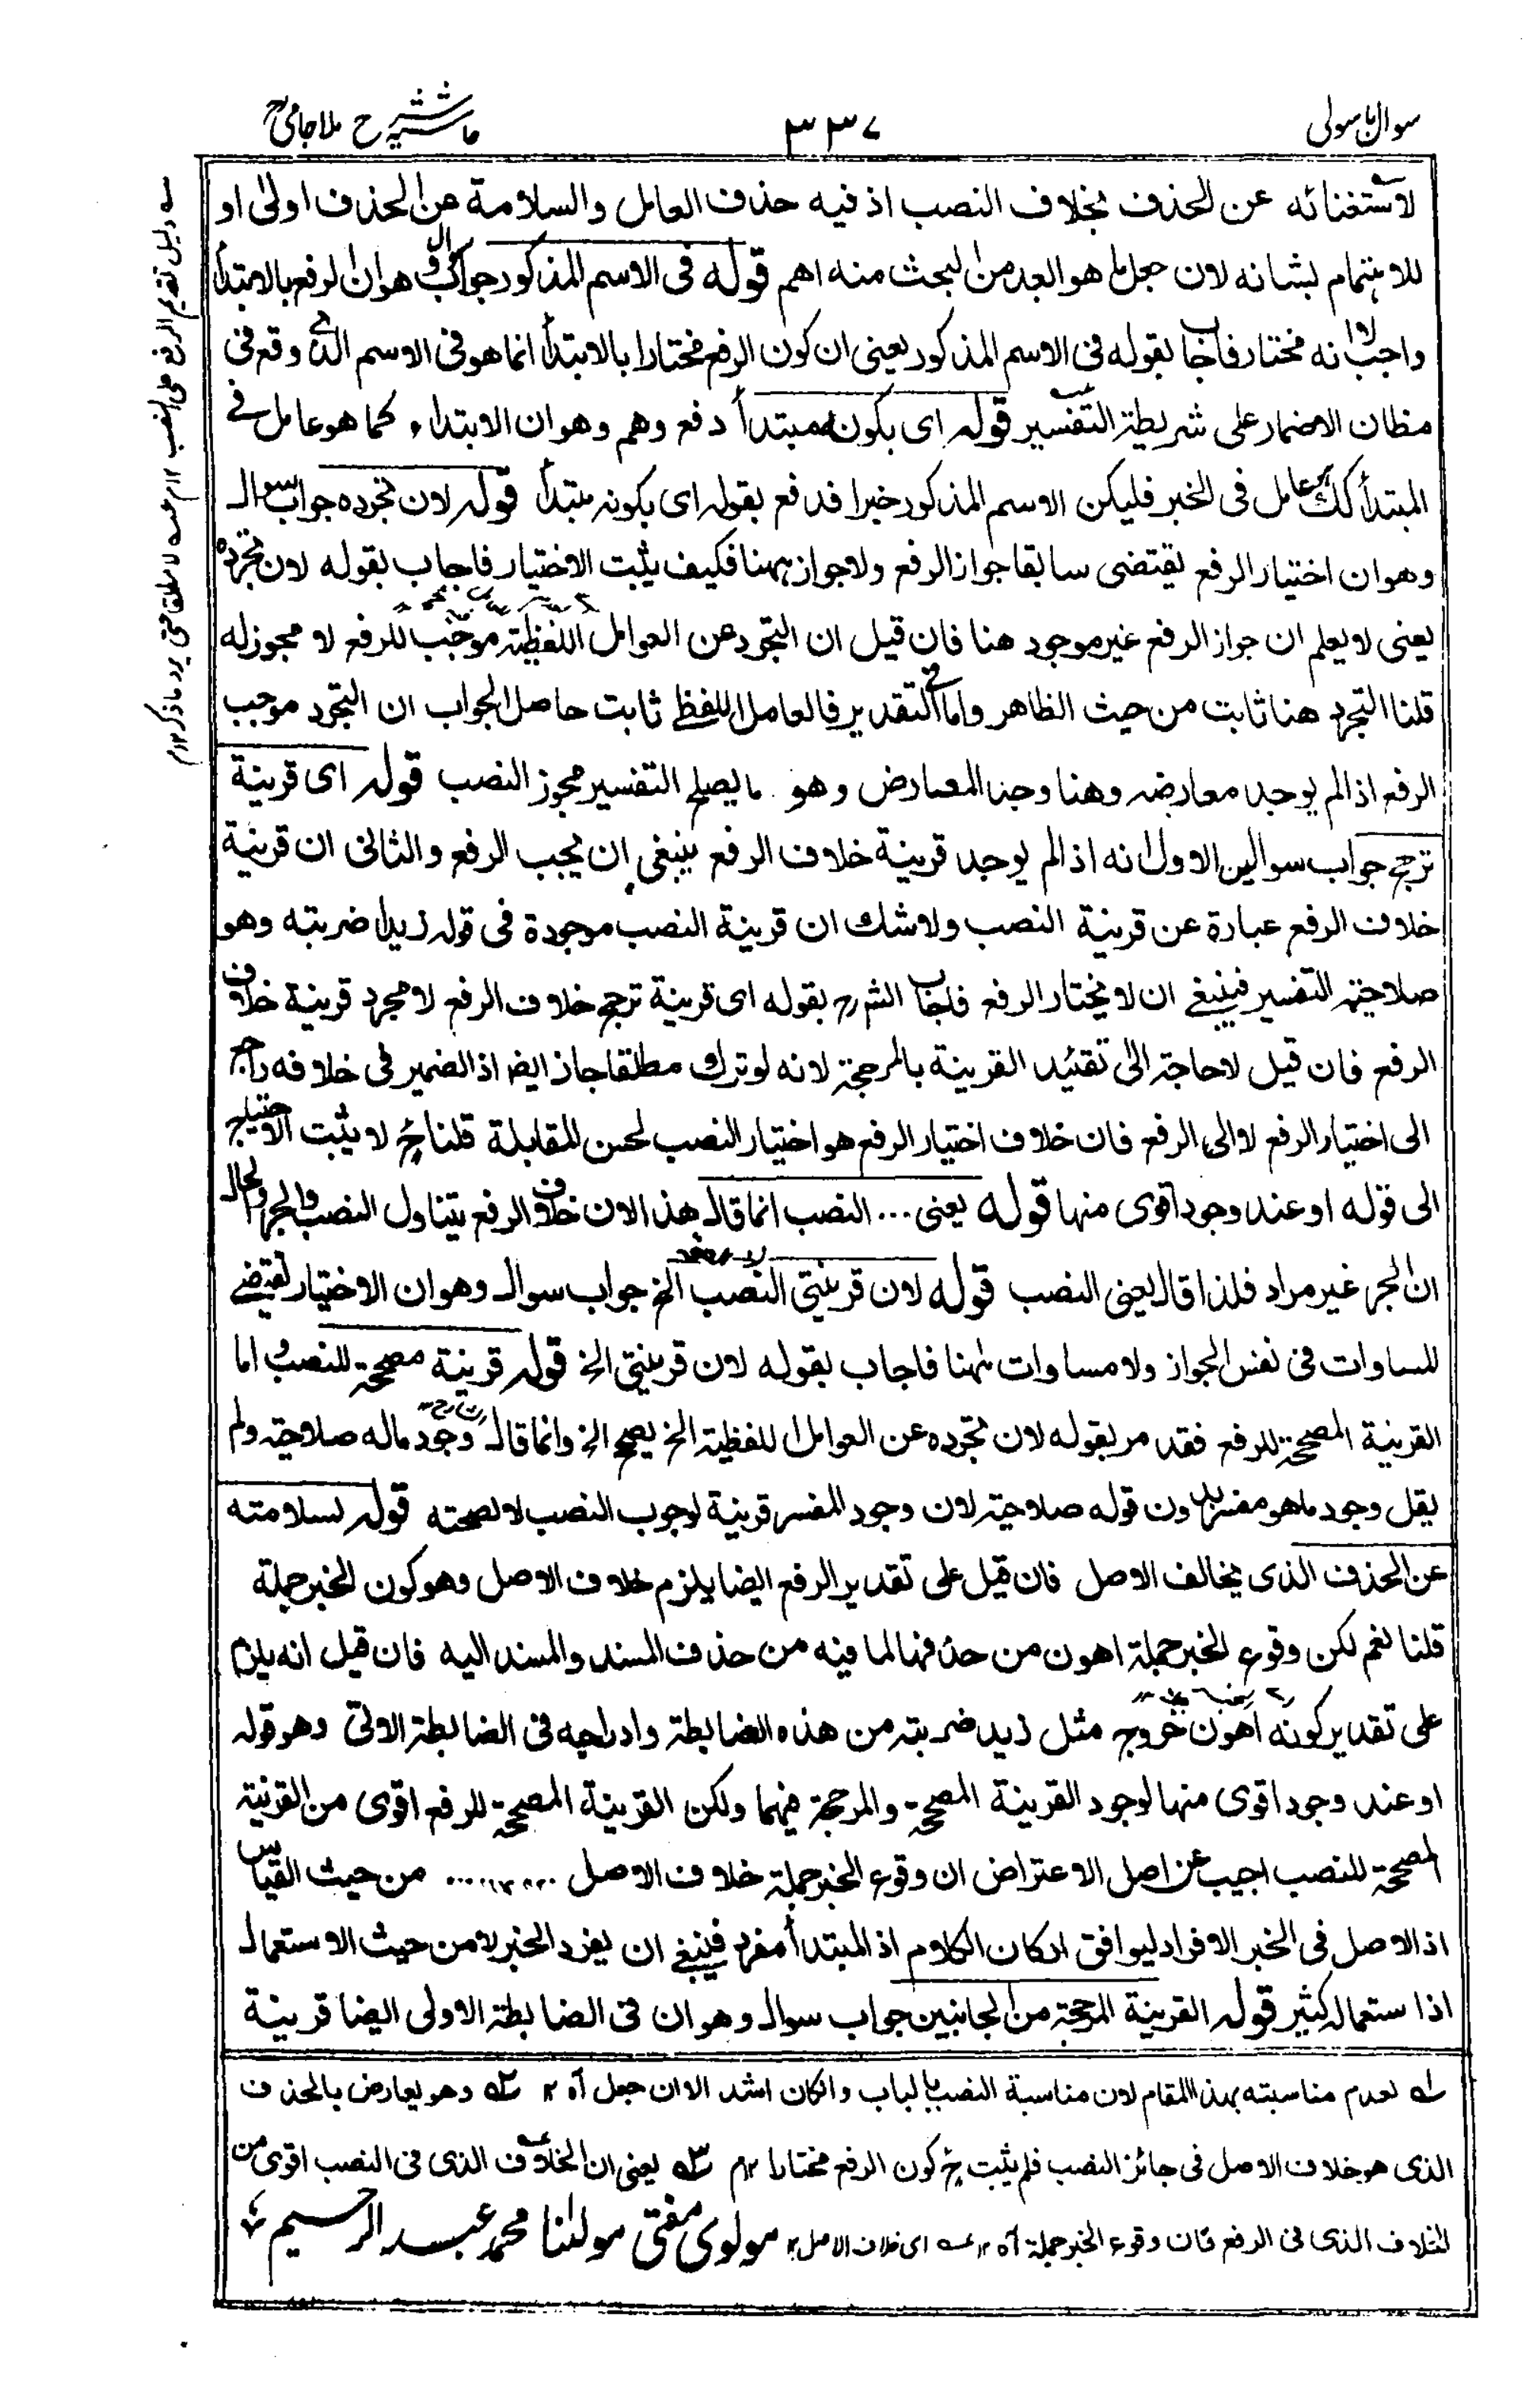 سوال باسولی ٣٣٧ حاشیه شرح ملا جامی
لاستغنائه عن الحذف بخلاف النصب اذ فيه حذف العامل والسلامة عن الحذف اولىٰ او
للاهتمام بشانه لان جعل ما هو العمدة من البحث منه اهم قوله فى الاسم المذكور جواب سوال وهو ان الرفع بالابتدأ
واجب لا انه مختار فاجاب بقوله فى الاسم المذكور يعنى ان كون الرفع مختارا بالابتدأ انما هو فى الاسم الذى وقع فى
مظان الاضمار على شريطة التفسير قوله اى بكونه مبتدأ دفع وهم وهو ان الابتداء كما هو عامل فى
المبتدأ كك عامل فى الخبر فليكن الاسم المذكور خبرا فدفع بقوله اى بكونه مبتدأ قوله لان تجرده جواب سوال
وهو ان اختيار الرفع يقتضى سابقا جواز الرفع ولا جواز ههنا فكيف يثبت الاختيار فاجاب بقوله لان تجرده
يعنى لا يعلم ان جواز الرفع غير موجود هنا فان قيل ان التجرد عن العوامل اللفظية موجب للرفع لا مجوز له
قلنا التجرد هنا ثابت من حيث الظاهر واما فى التقدير فالعامل اللفظى ثابت حاصل الجواب ان التجرد موجب
الرفع اذا لم يوجد معارضه وهنا وجد المعارض وهو ما يصلح التفسير مجوز النصب قوله اى قرينة
ترجح جواب سوالين الاول انه اذا لم يوجد قرينة خلاف الرفع ينبغى ان يجب الرفع والثانى ان قرينة
خلاف الرفع عبارة عن قرينة النصب ولا شك ان قرينة النصب موجودة فى قوله زيدا ضربته وهو
صلاحية التفسير فينبغى ان لا يختار الرفع فاجاب الشرح بقوله اى قرينة ترجح خلاف الرفع لا مجرد قرينة خلاف
الرفع فان قيل لا حاجة الى تقئيد القرينة بالمرجحة لانه لو ترك مطلقا جاز ايضا اذ الضمير فى خلافه راجع
الى اختيار الرفع لا الى الرفع فان خلاف اختيار الرفع هو اختيار النصب لحسن المقابلة قلنا ح لا يثبت الاحتياج
الى قوله او عند وجود اقوى منها قوله يعنى ... النصب انما قال هذا لان خلاف الرفع يتناول النصب والجر والحال
ان الجر غير مراد فلذا قال يعنى النصب قوله لان قرينتى النصب الخ جواب سوال وهو ان الاختيار يقتضى
المساوات فى نفس الجواز ولا مساوات ههنا فاجاب بقوله لان قرينتى الخ قوله قرينة مصححة للنصب و اما
القرينة المصححة للرفع فقد مر بقوله لان تجرده عن العوامل اللفظية الخ يصحح الخ وانما قال وجود ماله صلاحية ولم
يقل وجود ما هو مفسر بدون قوله صلاحية لان وجود المفسر قرينة لوجوب النصب لا لصحته قوله لسلامته
عن الحذف الذى يخالف الاصل فان قيل على تقدير الرفع ايضا يلزم خلاف الاصل وهو كون الخبر جملة
قلنا نعم لكن وقوع الخبر جملة اهون من حذفها لما فيه من حذف المسند والمسند اليه فان قيل انه يلزم
على تقدير كونه اهون خروج مثل زيد ضربته من هذه الضابطة وادراجه فى الضابطة الاولى وهو قوله
او عند وجود اقوى منها لوجود القرينة المصححة والمرجحة فيهما ولكن القرينة المصححة للرفع اقوى من القرينة
المصححة للنصب اجيب عن اصل الاعتراض ان وقوع الخبر جملة خلاف الاصل ...... من حيث القياس
اذ الاصل فى الخبر الافراد ليوافق اركان الكلام اذ المبتدأ مفرد فينبغى ان يفرد الخبر لا من حيث الاستعمال
اذا ستعماله كثير قوله القرينة المرجحة من الجانبين جواب سوال وهو ان فى الضابطة الاولى ايضا قرينة
له لعدم مناسبته بهذا المقام لان مناسبة النصب بالباب وان كان اشد الا ان جعل اه ١٢ ٢ه وهو يعارض بالحذف
الذى هو خلاف الاصل فى جائز النصب فلم يثبت ح كون الرفع مختارا ١٢م ٣ه يعنى ان الخلاف الذى فى النصب اقوى من
الخلاف الذى فى الرفع فان وقوع الخبر جملة اه ١٢ عه اى خلاف الاصل ١٢ مولوی مفتی مولٰنا محمد عبد الرحیم
سه دليل تقديم الرفع على النصب ١٢م عه لا مطلقا حتى يرد ما ذكر ١٢م